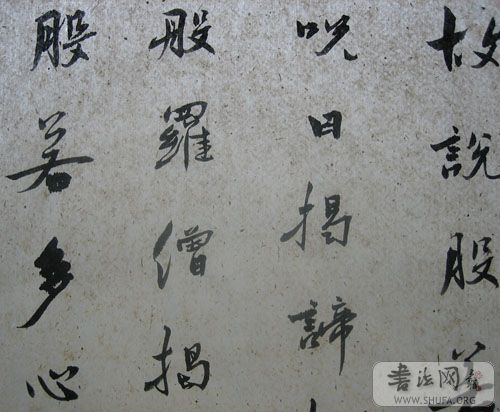 故說般
呪曰揭諦
般羅僧揭
般若多心
书法网
WWW.SHUFA.ORG